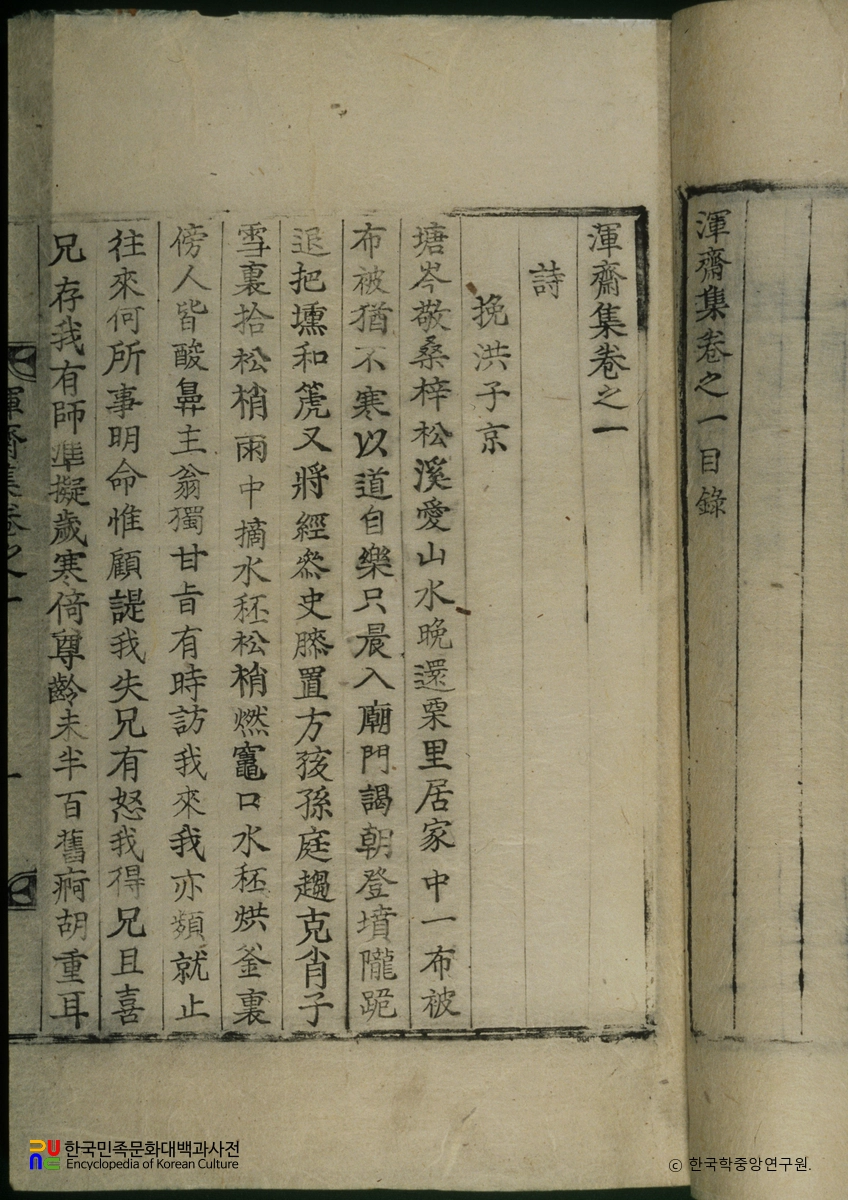 渾齋集卷之一目錄
渾齋集卷之一
詩
挽洪子京
塘岑敬桑梓松溪愛山水晩還栗里居家中一布被
布被猶不寒以道自樂只晨入廟門謁朝登墳隴跪
退把壎和篪又將經叅史膝置方孩孫庭趨克肖子
雪裏拾松梢雨中摘水秠松梢燃竈口水秠烘釜裏
傍人皆酸鼻主翁獨甘旨有時訪我來我亦頻就止
往來何所事明命惟顧諟我失兄有怒我得兄且喜
兄存我有師準擬歲寒倚尊齡未半百舊痾胡重耳
渾齋集卷之一
一
한국민족문화대백과사전
Encyclopedia of Korean Culture
© 한국학중앙연구원.